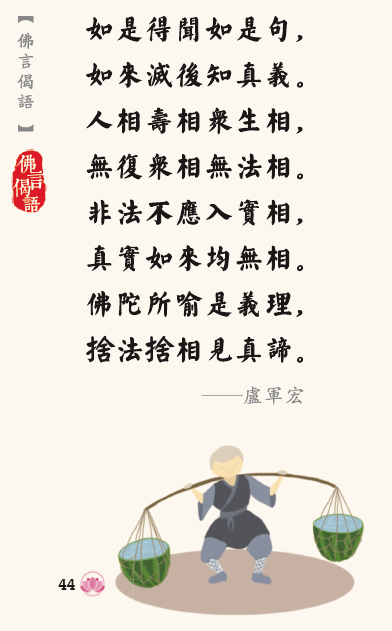 【佛言偈語】
佛言偈語
如是得聞如是句，
如來滅後知真義。
人相壽相眾生相，
無復眾相無法相。
非法不應入實相，
真實如來均無相。
佛陀所喻是義理，
捨法捨相見真諦。
——盧軍宏
44